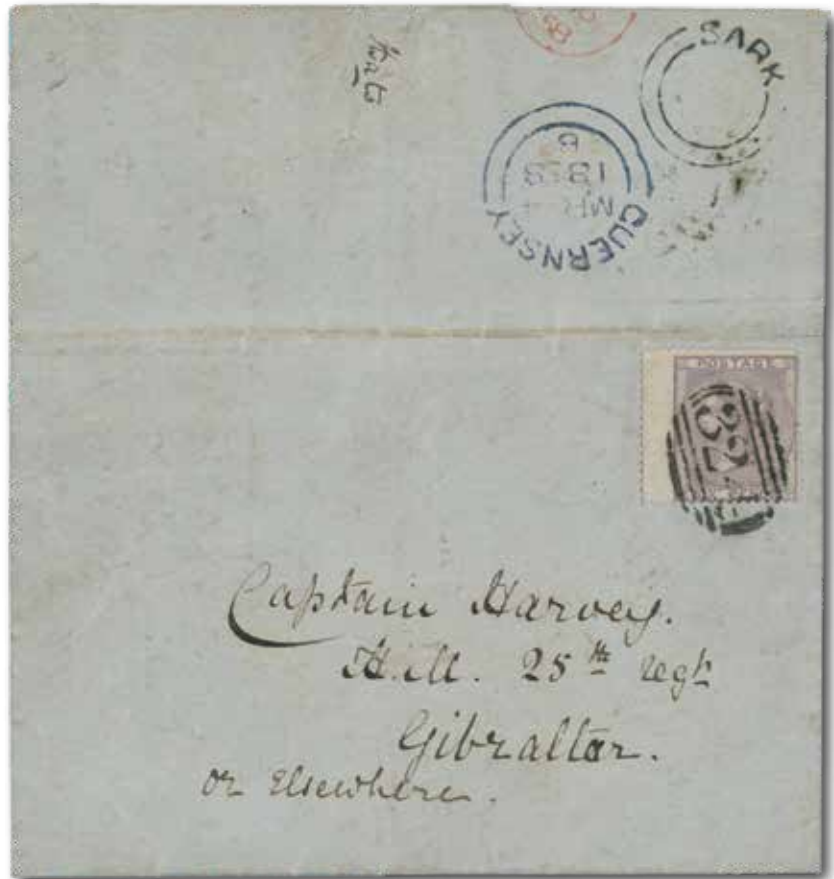 SARK
GUERNSEY
MR
1858
B
POSTAGE
324
Captain Harvey.
H.M. 25th regt
Gibraltar.
or Elsewhere.